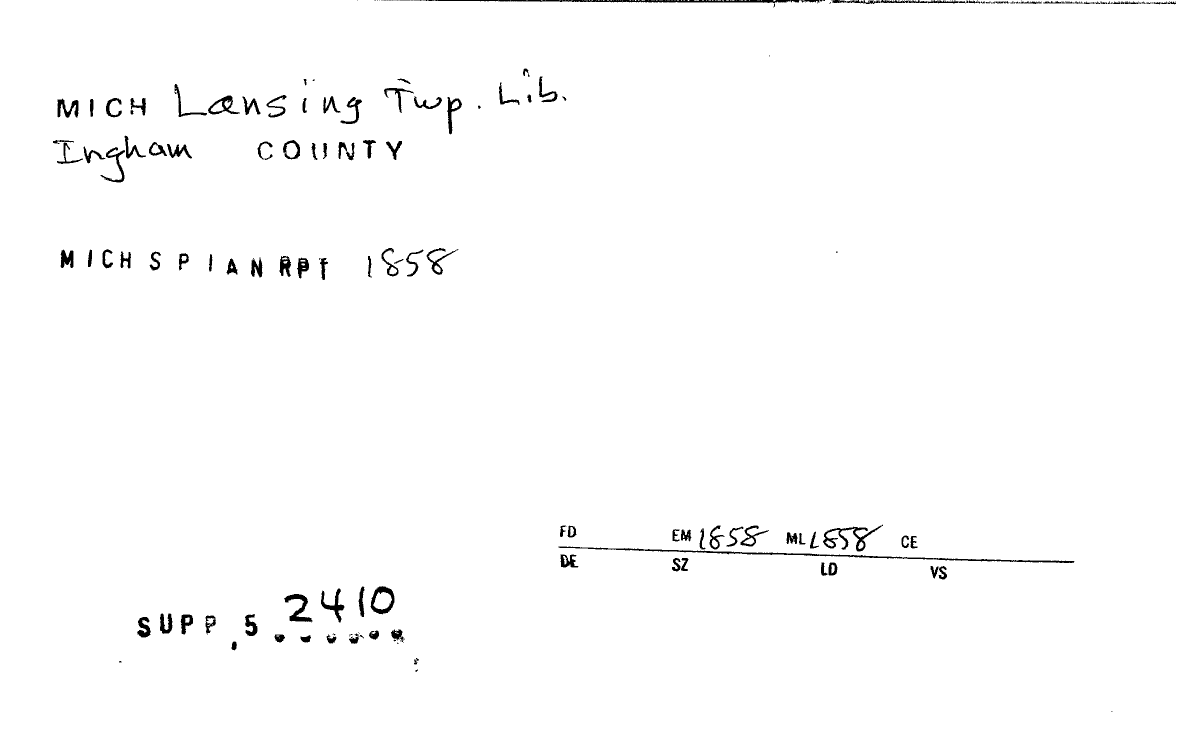 MICH Lansing Twp. Lib.
Ingham COUNTY
MICH S P I A N RPT 1858
FD EM 1858 ML 1858 CE
DE SZ LD VS
SUPP, 5 2410